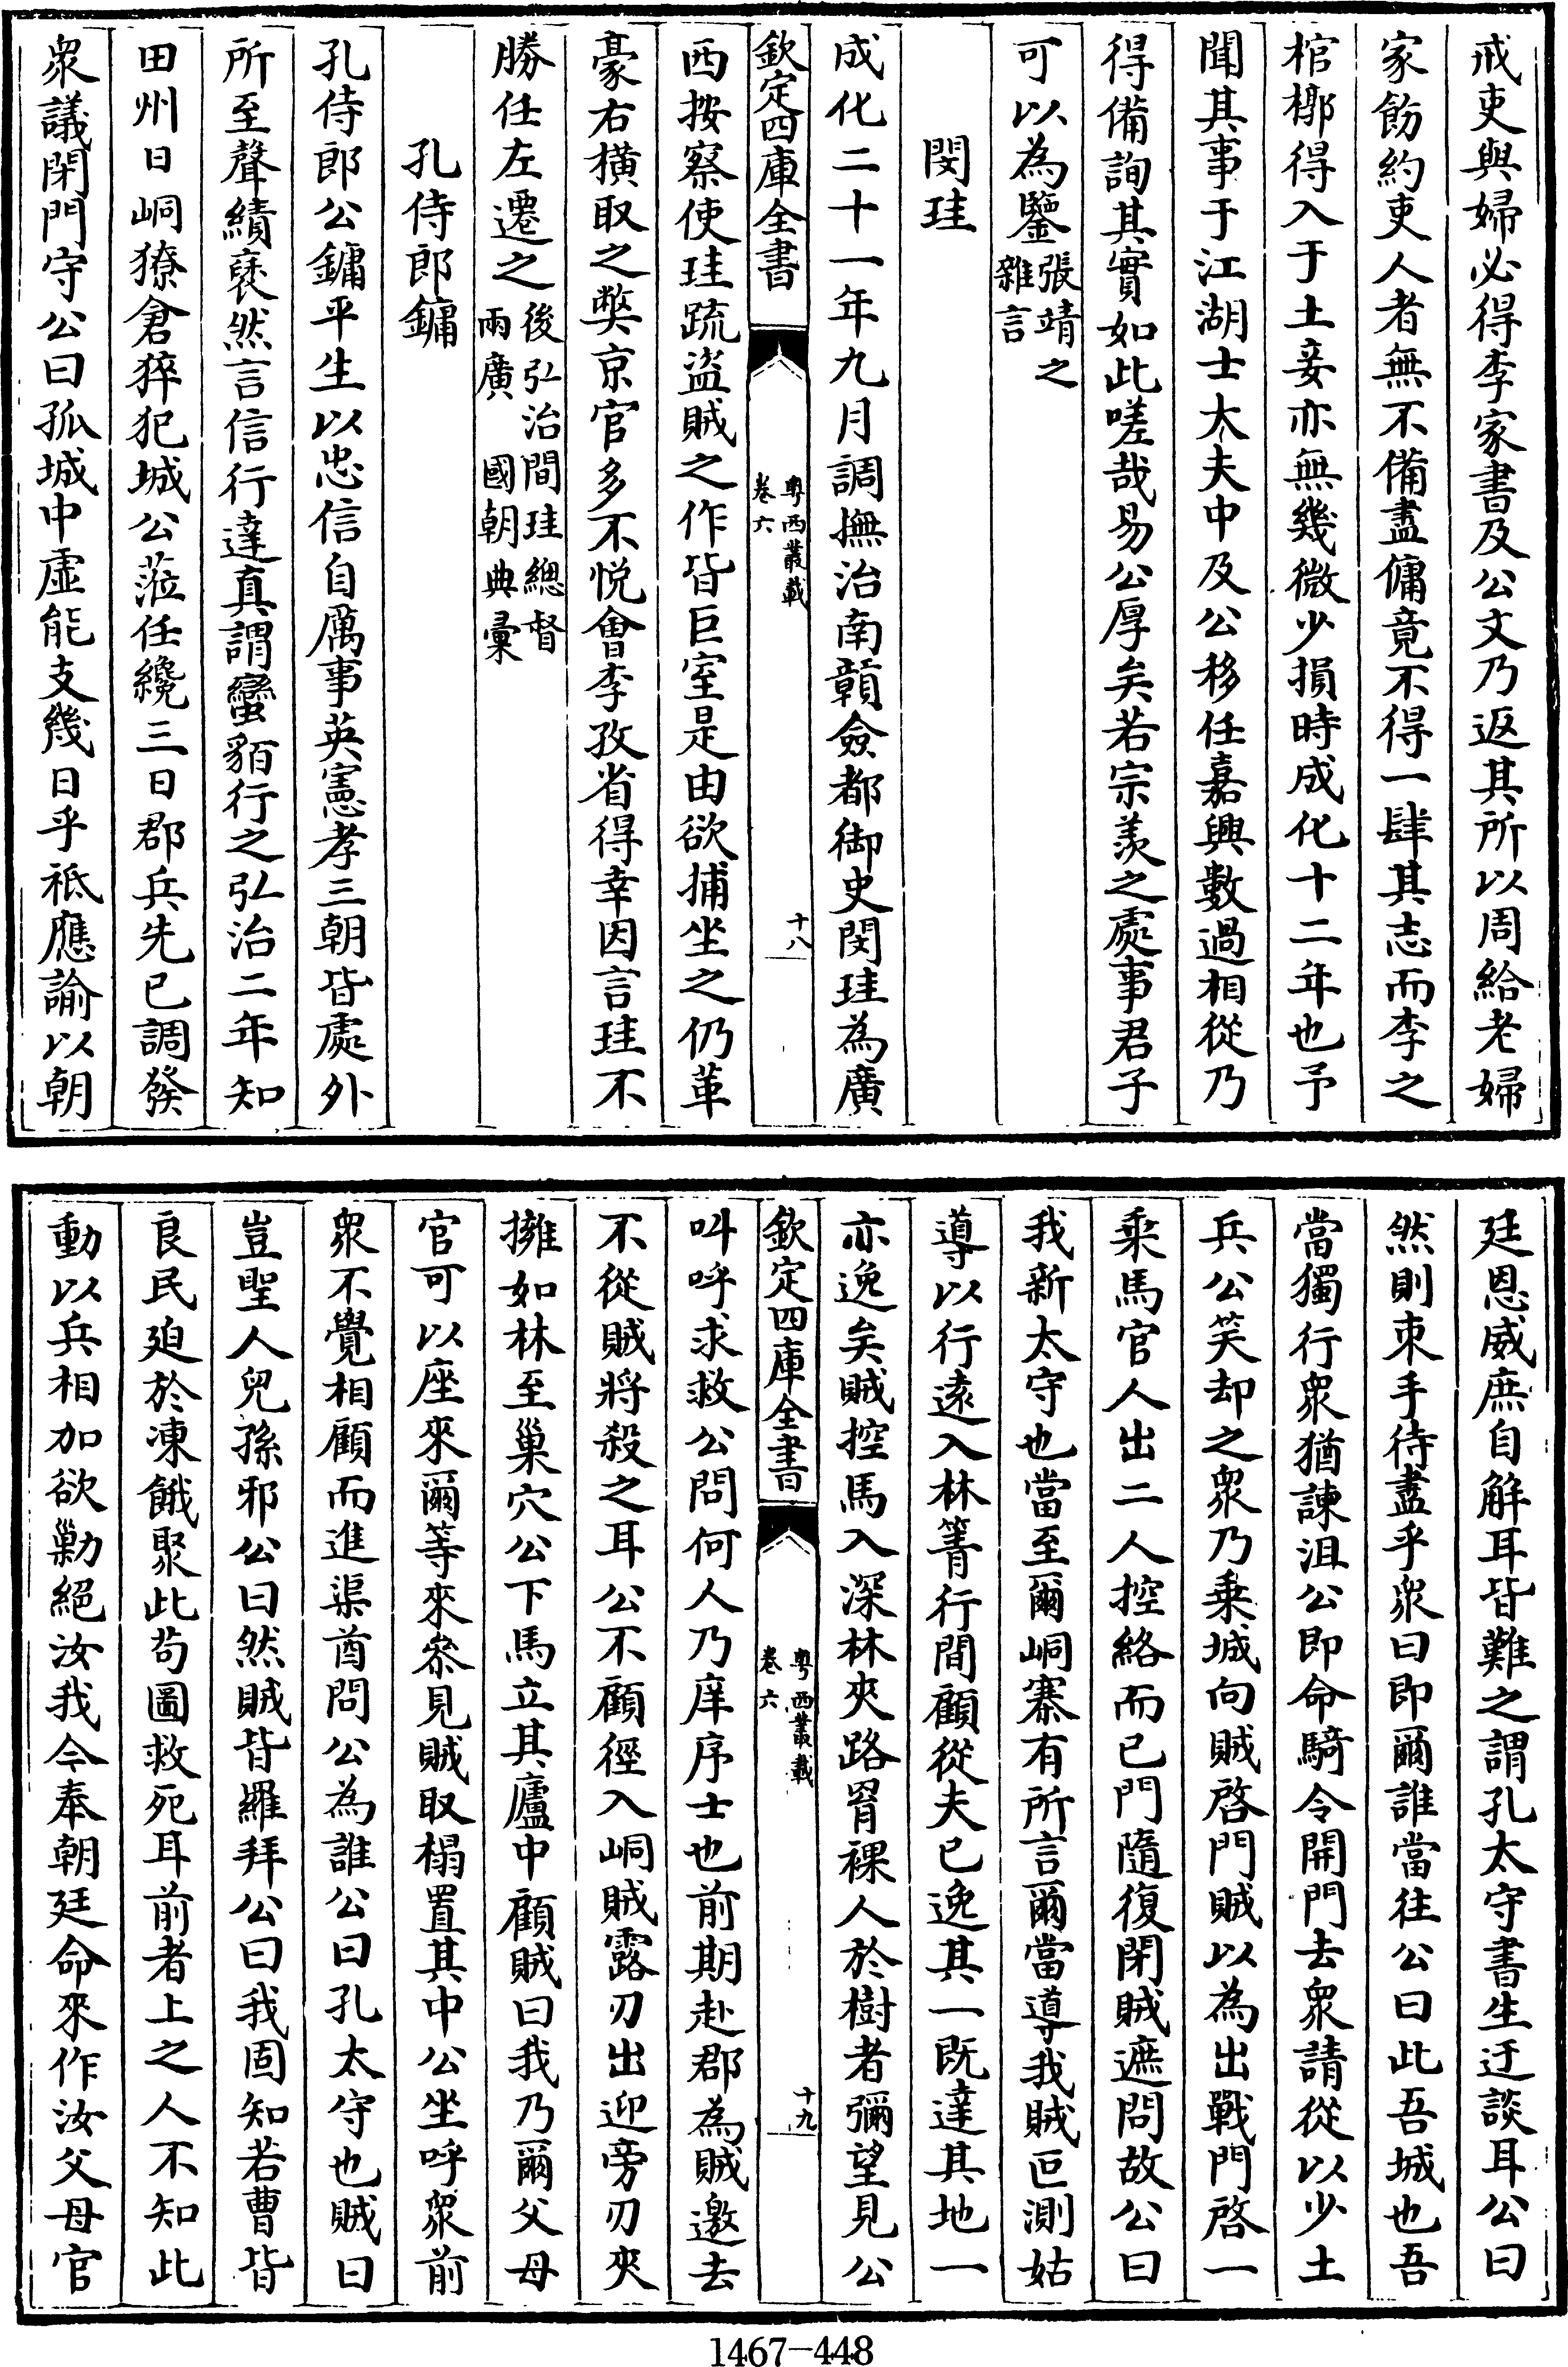 戒吏與婦必得李家書及公文乃返其所以周給老婦
家飭約吏人者無不備盡傭竟不得一肆其志而李之
棺槨得入于土妾亦無幾微少損時成化十二年也予
聞其事于江湖士大夫中及公移任嘉興數過相從乃
得備詢其實如此嗟哉易公厚矣若宗羨之處事君子
可以為鑒張靖之
雜言
閔珪
成化二十一年九月調撫治南贑僉都御史閔珪為廣
欽定四庫全書
粤西叢載
卷六
十八
西按察使珪疏盜賊之作皆巨室是由欲捕坐之仍革
豪右横取之獘京官多不悦會李孜省得幸因言珪不
勝任左遷之後弘治間珪總督
兩廣 國朝典彚
孔侍郎鏞
孔侍郎公鏞平生以忠信自厲事英憲孝三朝皆處外
所至聲績褎然言信行達真謂蠻貊行之弘治二年知
田州日峒獠倉猝犯城公蒞任纔三日郡兵先已調發
衆議閉門守公曰孤城中虛能支幾日乎祗應諭以朝
廷恩威庶自解耳皆難之謂孔太守書生迂談耳公曰
然則束手待盡乎衆曰即爾誰當往公曰此吾城也吾
當獨行衆猶諫沮公即命騎令開門去衆請從以少土
兵公笑却之衆乃乘城向賊啓門賊以為出戰門啓一
乘馬官人出二人控絡而已門隨復閉賊遮問故公曰
我新太守也當至爾峒寨有所言爾當導我賊叵測姑
導以行遠入林箐行間顧從夫已逸其一既達其地一
亦逸矣賊控馬入深林夾路罥裸人於樹者彌望見公
欽定四庫全書
粤西叢載
卷六
十九
叫呼求救公問何人乃庠序士也前期赴郡為賊邀去
不從賊將殺之耳公不顧徑入峒賊露刃出迎旁刃夾
擁如林至巢穴公下馬立其廬中顧賊曰我乃爾父母
官可以座來爾等來叅見賊取榻置其中公坐呼衆前
衆不覺相顧而進渠酋問公為誰公曰孔太守也賊曰
豈聖人兒孫邪公曰然賊皆羅拜公曰我固知若曹皆
良民廹於凍餓聚此苟圖救死耳前者上之人不知此
動以兵相加欲勦絕汝我今奉朝廷命來作汝父母官
1467-448